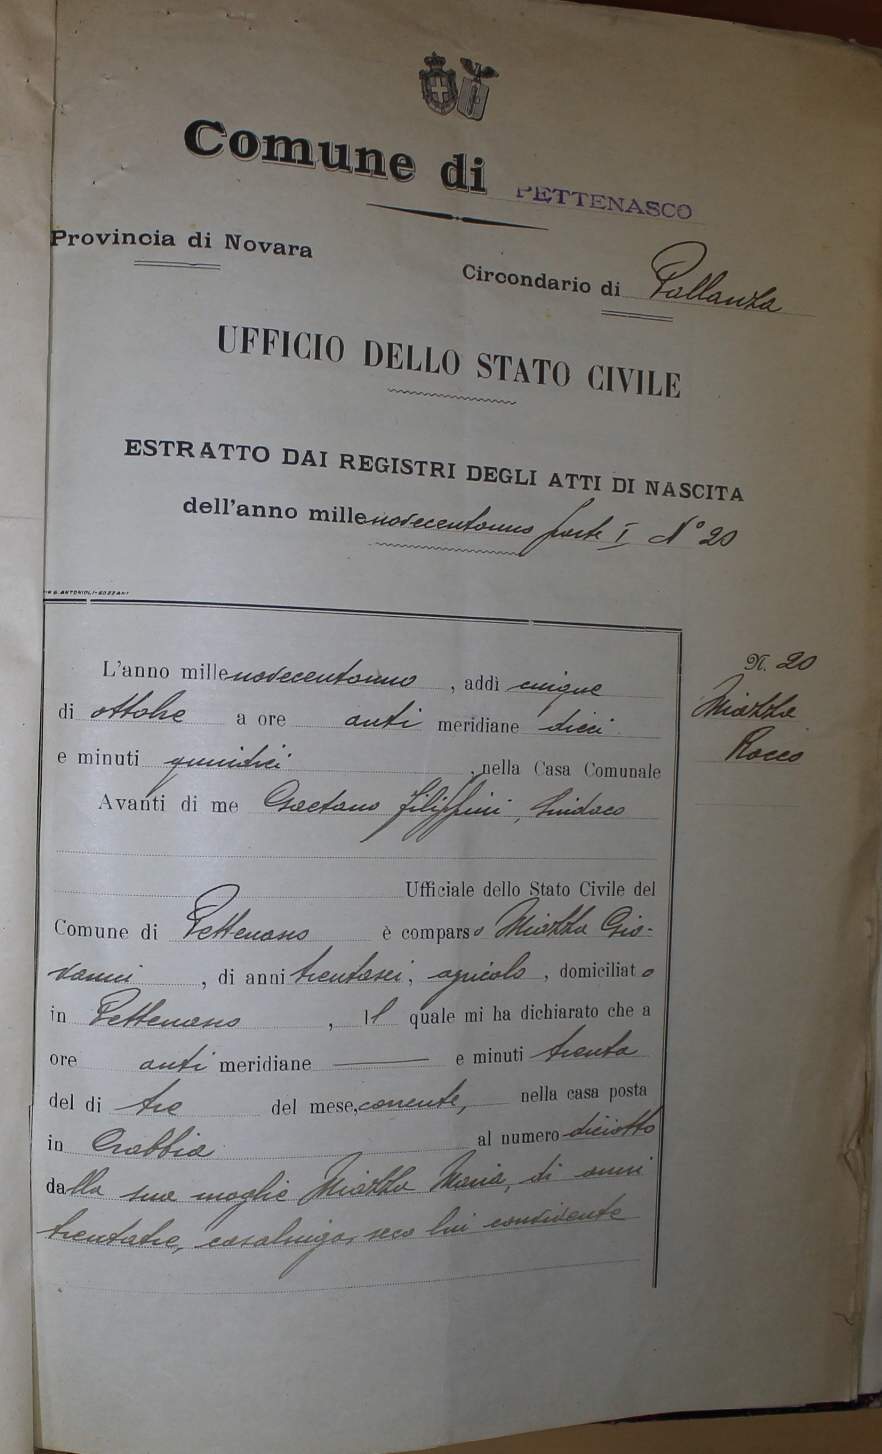 Comune di PETTENASCO
Provincia di Novara
Circondario di Pallanza
UFFICIO DELLO STATO CIVILE
ESTRATTO DAI REGISTRI DEGLI ATTI DI NASCITA
dell'anno millenovecentouno parte I N° 20
G. ANTONIOLI-GOZZANI
N. 20
Miazza
Rocco
L'anno millenovecentouno, addì cinque
di ottobre a ore anti meridiane dieci
e minuti quindici, nella Casa Comunale
Avanti di me Gaetano Filippini, Sindaco
Ufficiale dello Stato Civile del
Comune di Pettenasco è comparso Miazza Gio-
vanni, di anni trentasei, agricolo, domiciliato
in Pettenasco, il quale mi ha dichiarato che a
ore anti meridiane — e minuti trenta
del dì tre del mese, corrente, nella casa posta
in Crabbia al numero diciotto
dalla sua moglie Miazza Maria, di anni
trentatre, casalinga, seco lui convivente